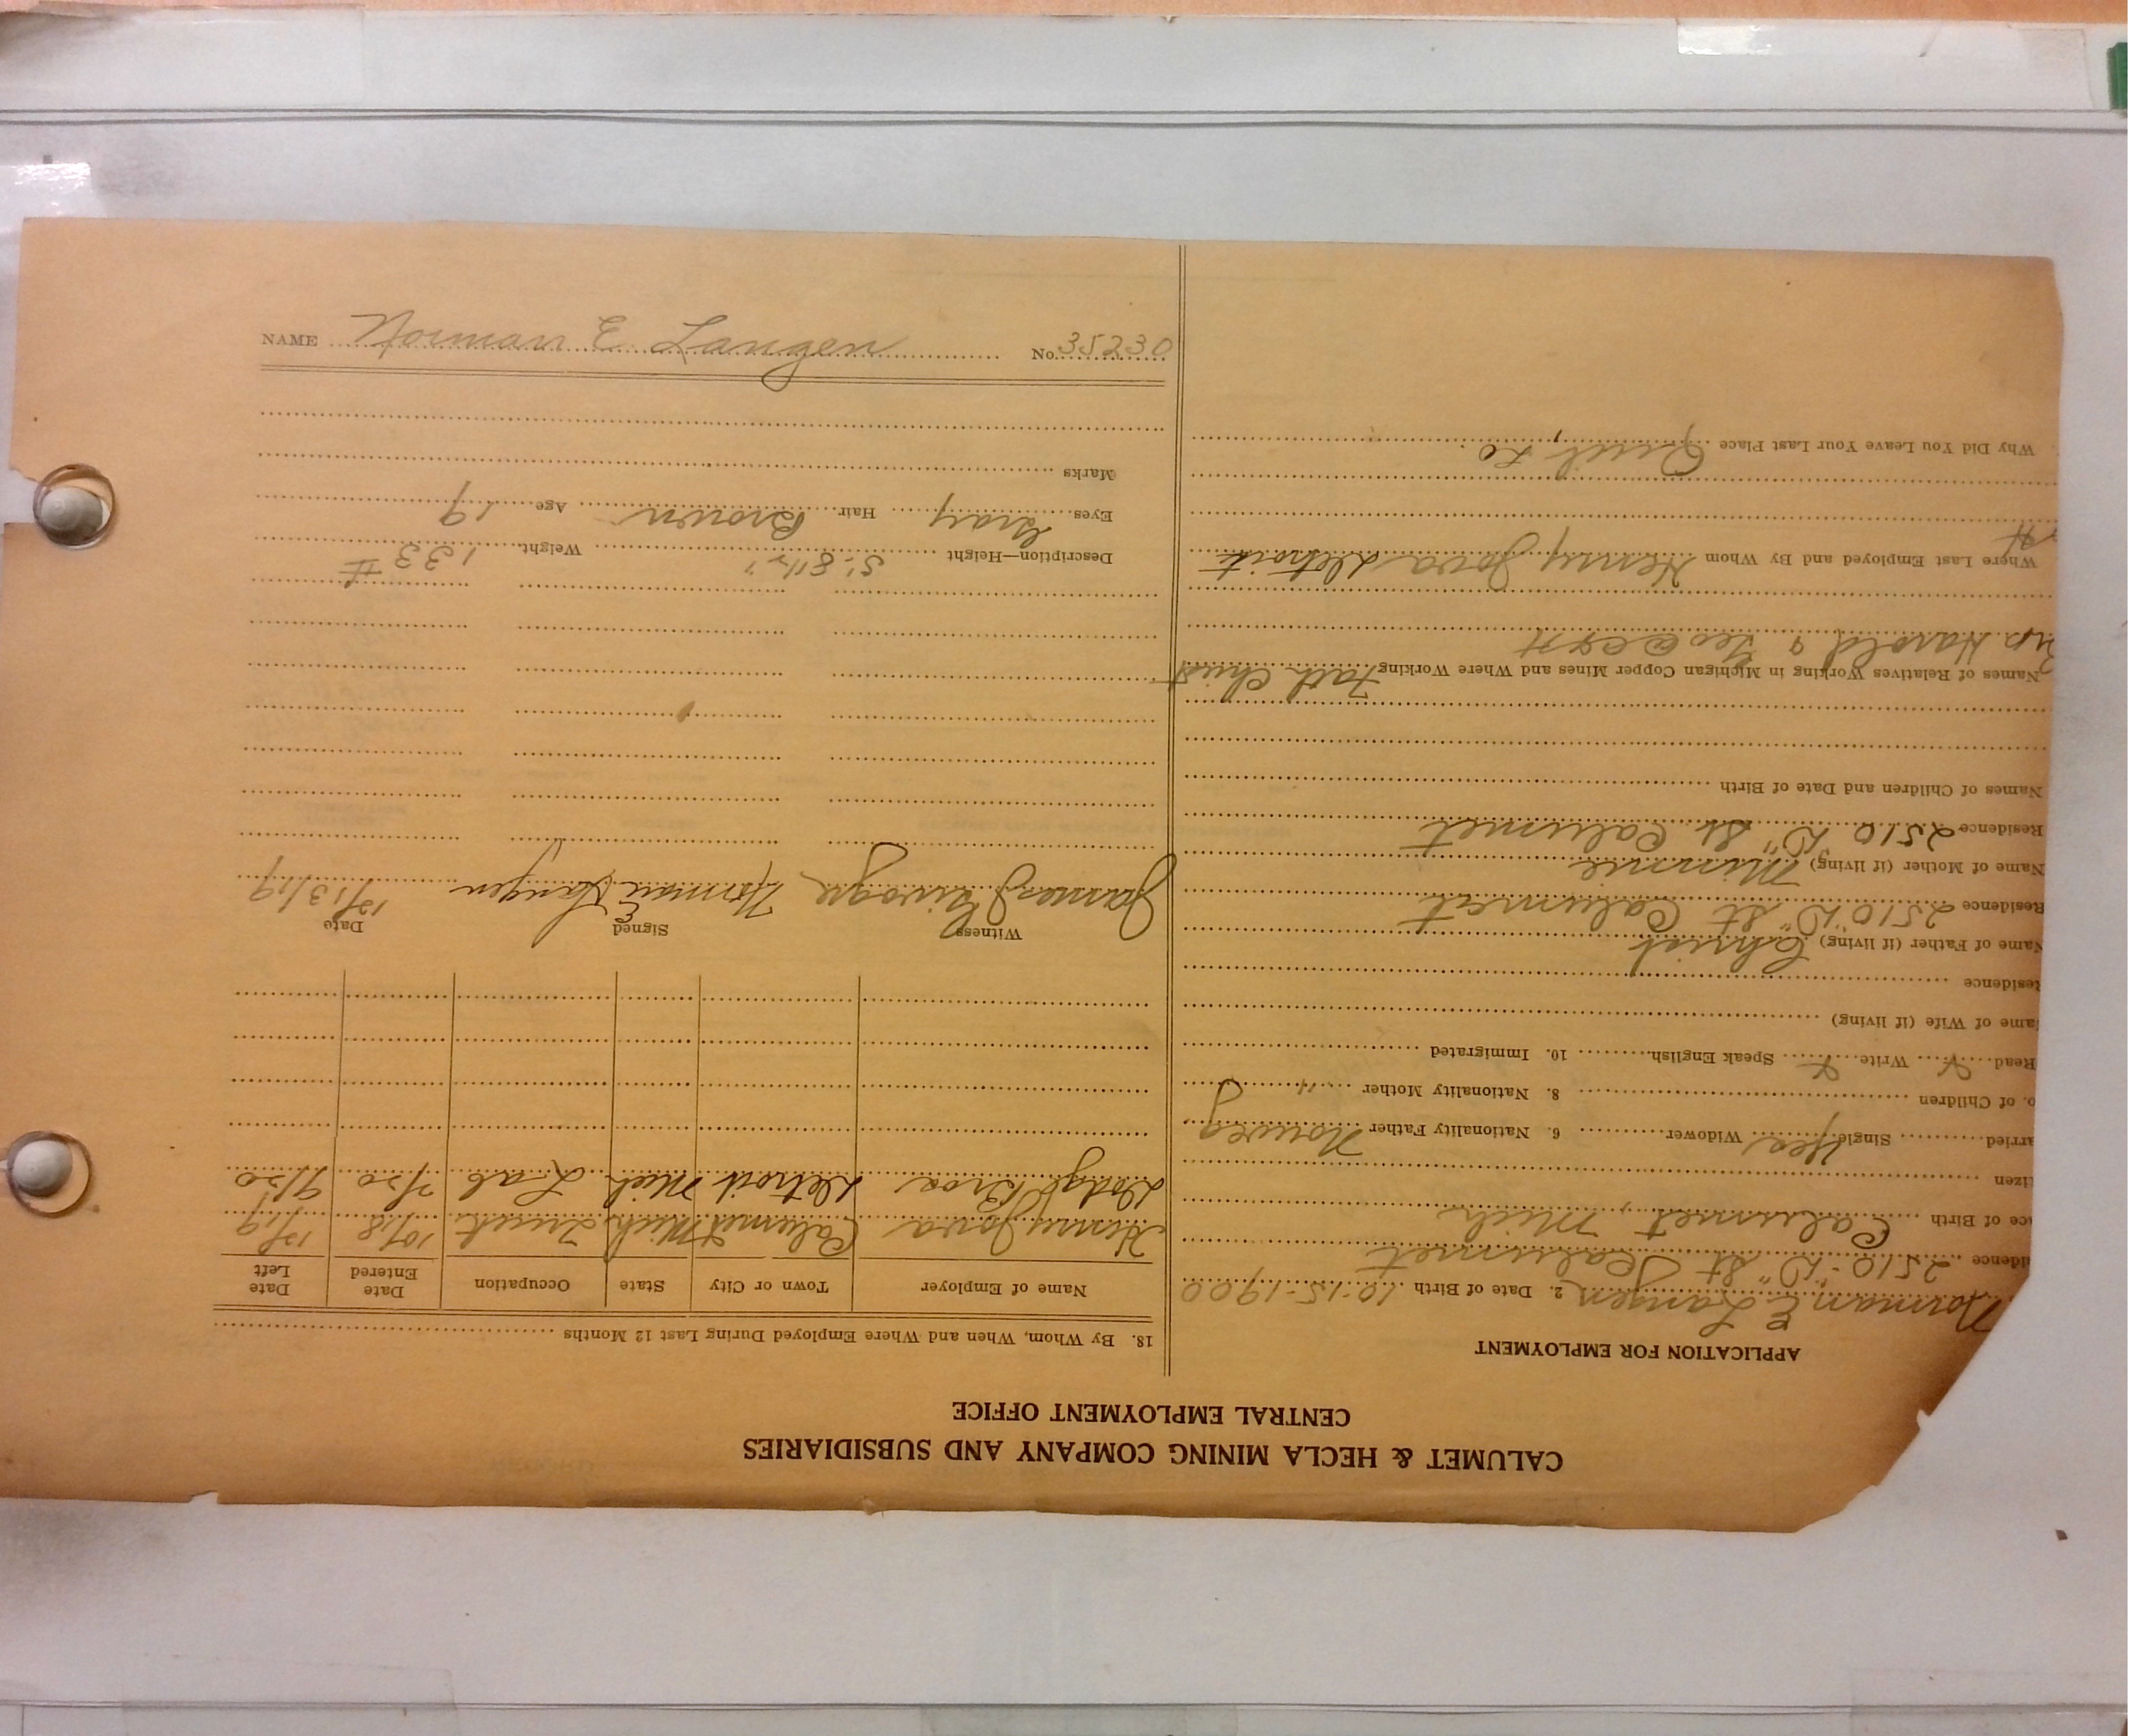 CALUMET & HECLA MINING COMPANY AND SUBSIDIARIES
CENTRAL EMPLOYMENT OFFICE
APPLICATION FOR EMPLOYMENT
Norman E Langen 2. Date of Birth 10-15-1900
idence 2510 "D" St Calumet
ace of Birth Calumet, Mich
izen
arried Single Yes Widower 6. Nationality Father Norweg
o. of Children 8. Nationality Mother "
Read X Write X Speak English 10. Immigrated
ame of Wife (if living)
Residence
Name of Father (if living) Christ
Residence 2510 "D" St Calumet
Name of Mother (if living) Minnie
Residence 2510 "D" St. Calumet
Names of Children and Date of Birth
Names of Relatives Working in Michigan Copper Mines and Where Working Fath Christ
Bro. Harold & Leo @ C & H
Where Last Employed and By Whom Henry Detroit
Why Did You Leave Your Last Place Quit
18. By Whom, When and Where Employed During Last 12 Months
Name of Employer Town or City State Occupation Date Entered Date Left
Henry Calumet Mich Mich 10/18 12/19
Dodge Bros Detroit Mich Lab 2/20 9/20
Witness Signed Date
James Norman E Langen 12/13/19
Description—Height 5'-8 1/2" Weight 133 #
Eyes Gray Hair Brown Age 19
Marks
NAME Norman E. Langen No. 35230